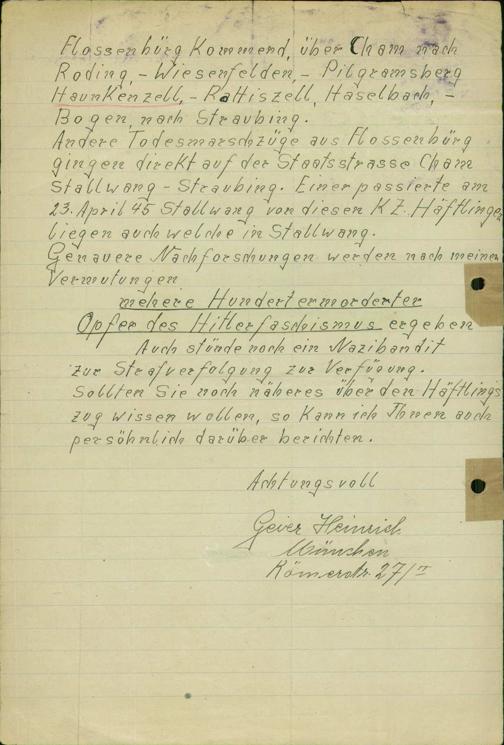 Flossenbürg Kommend, über Cham nach
Roding, - Wiesenfelden, - Pilgramsberg
Haunkenzell, - Rattiszell, Haselbach, -
Bogen, nach Straubing.
Andere Todesmarschzüge aus Flossenbürg
gingen direkt auf der Staatsstrasse Cham
Stallwang - Straubing. Einer passierte am
23. April 45 Stallwang von diesen K.Z. Häftlingen
liegen auch welche in Stallwang.
Genauere Nachforschungen werden nach meinen
Vermutungen
mehere Hundertermorderter
Opfer des Hitlerfaschismus ergeben
Auch stünde noch ein Nazibandit
zur Strafverfolgung zur Verfügung.
Sollten Sie noch näheres über den Häftlings
zug wissen wollen, so Kann ich Ihnen auch
persöhnlich darüber berichten.
Achtungsvoll
Geier Heinrich
München
Römerstr. 27/II